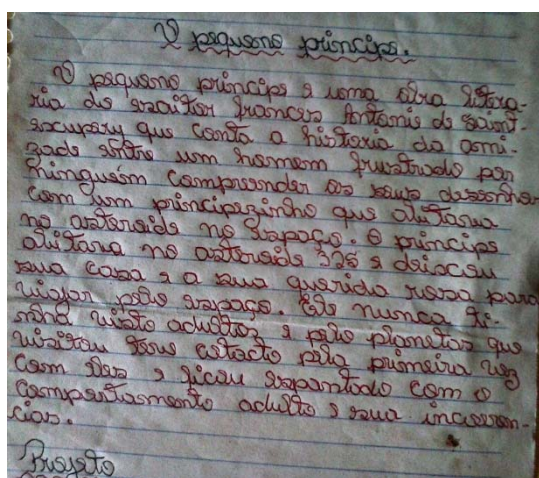 O pequeno principe.
O pequeno principe e uma obra litera-
ria do escritor frances Antonie de Saint-
exupery que conta a historia da ami-
zade entre um homem frustrado por
ninguém compreender os seus desenhos
com um principezinho que abitava
no asteroide no espaço. O principe
abitava no asteroide 325 e deixou
sua casa e a sua querida rosa para
viajar pelo espaço. Ele nunca ti-
nha visto adultos e pelo planetas que
visitou teve cotacto pela primeira vez
com eles e ficou espantado com o
comportasmento adulto e sua incoeren-
cias.
Projeto